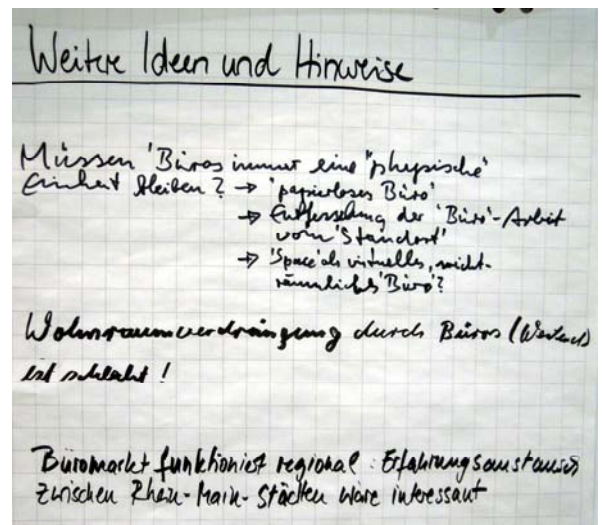 Weitere Ideen und Hinweise
Müssen 'Büros immer eine "physische"
Einheit bleiben? → 'papierloses Büro'
→ Entfesselung der 'Büro'-Arbeit
vom 'Standort'
→ 'Space' als virtuelles, nicht-
räumliches 'Büro'?
Wohnraumverdrängung durch Büros (Westend)
ist schlecht!
Büromarkt funktioniert regional: Erfahrungsaustausch
zwischen Rhein-Main-Städten wäre interessant